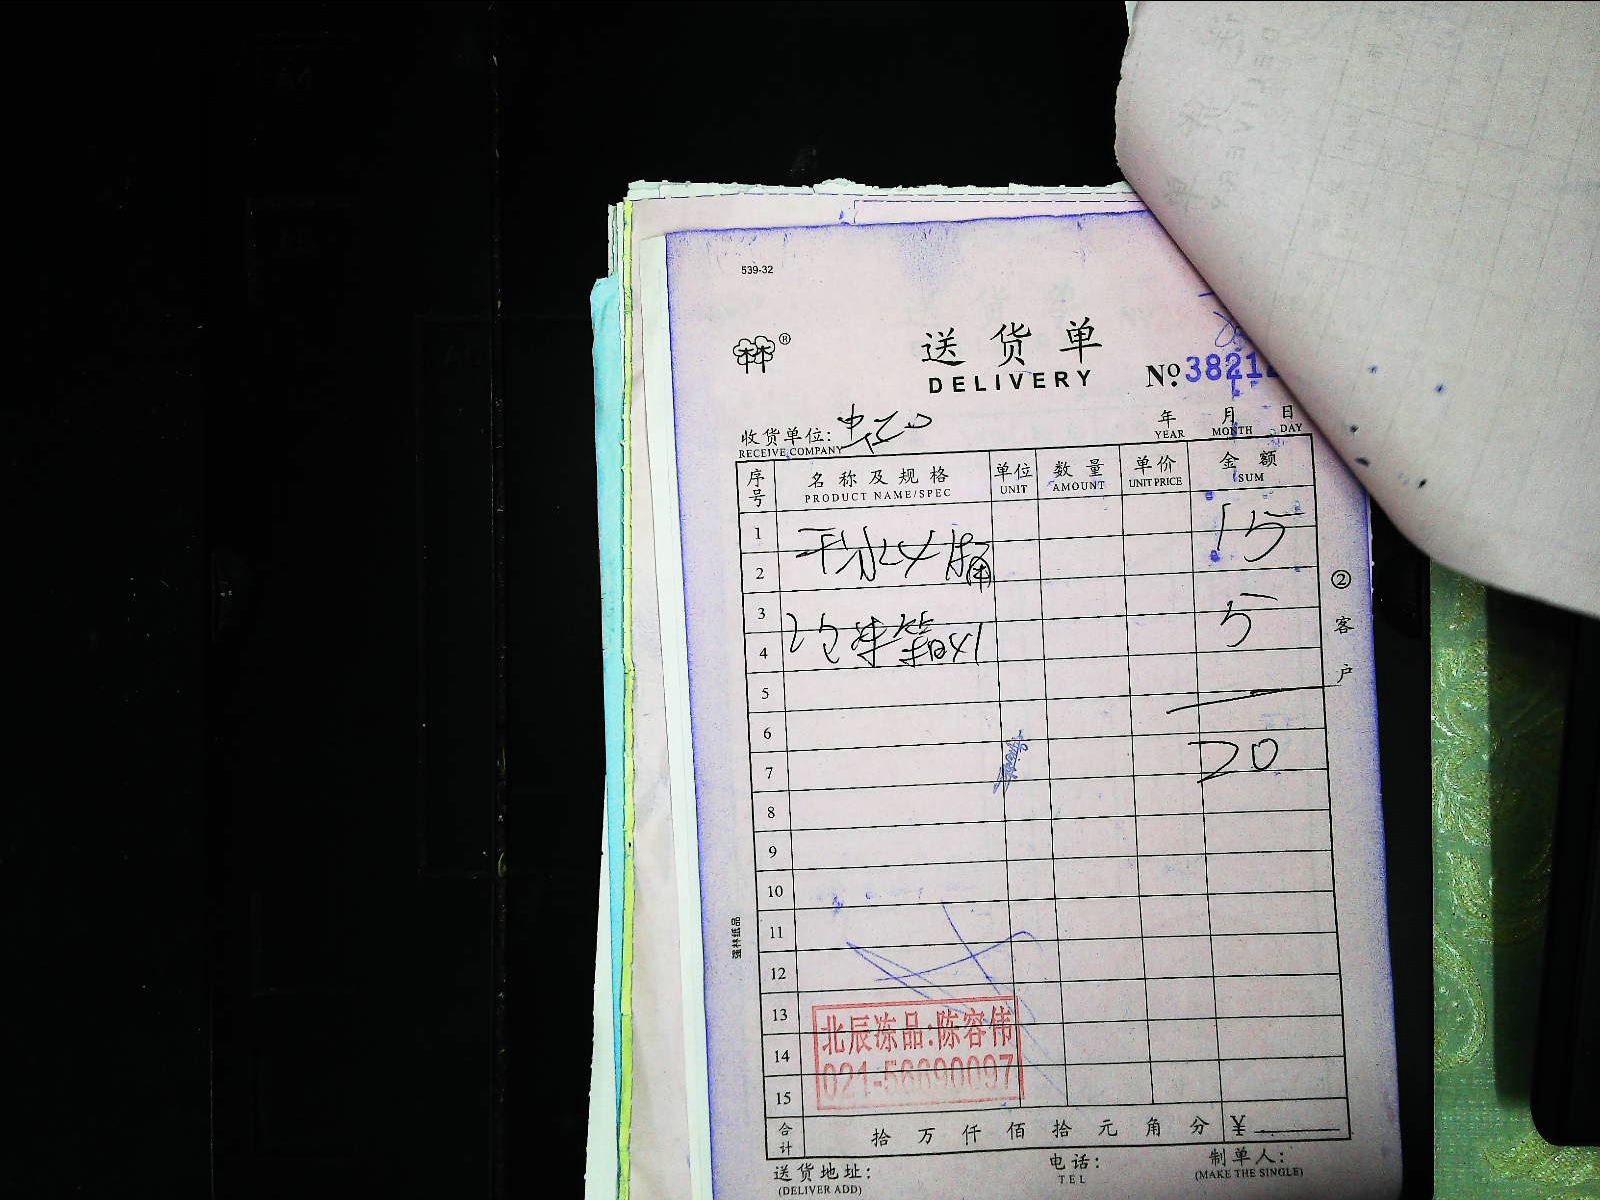 539-32
®
送货单
DELIVERY
№ 3821
收货单位:
RECEIVE COMPANY
年 月 日
YEAR MONTH DAY
序号 名称及规格 单位 数量 单价 金额
PRODUCT NAME/SPEC UNIT AMOUNT UNIT PRICE SUM
1
15
2
3
5
4
5
6
7
20
8
9
10
11
12
13
14
15
北辰冻品:陈容伟
021-56690097
合计 拾 万 仟 佰 拾 元 角 分 ¥
送货地址: 电话: 制单人:
(DELIVER ADD) TEL (MAKE THE SINGLE)
② 客户
强林纸品